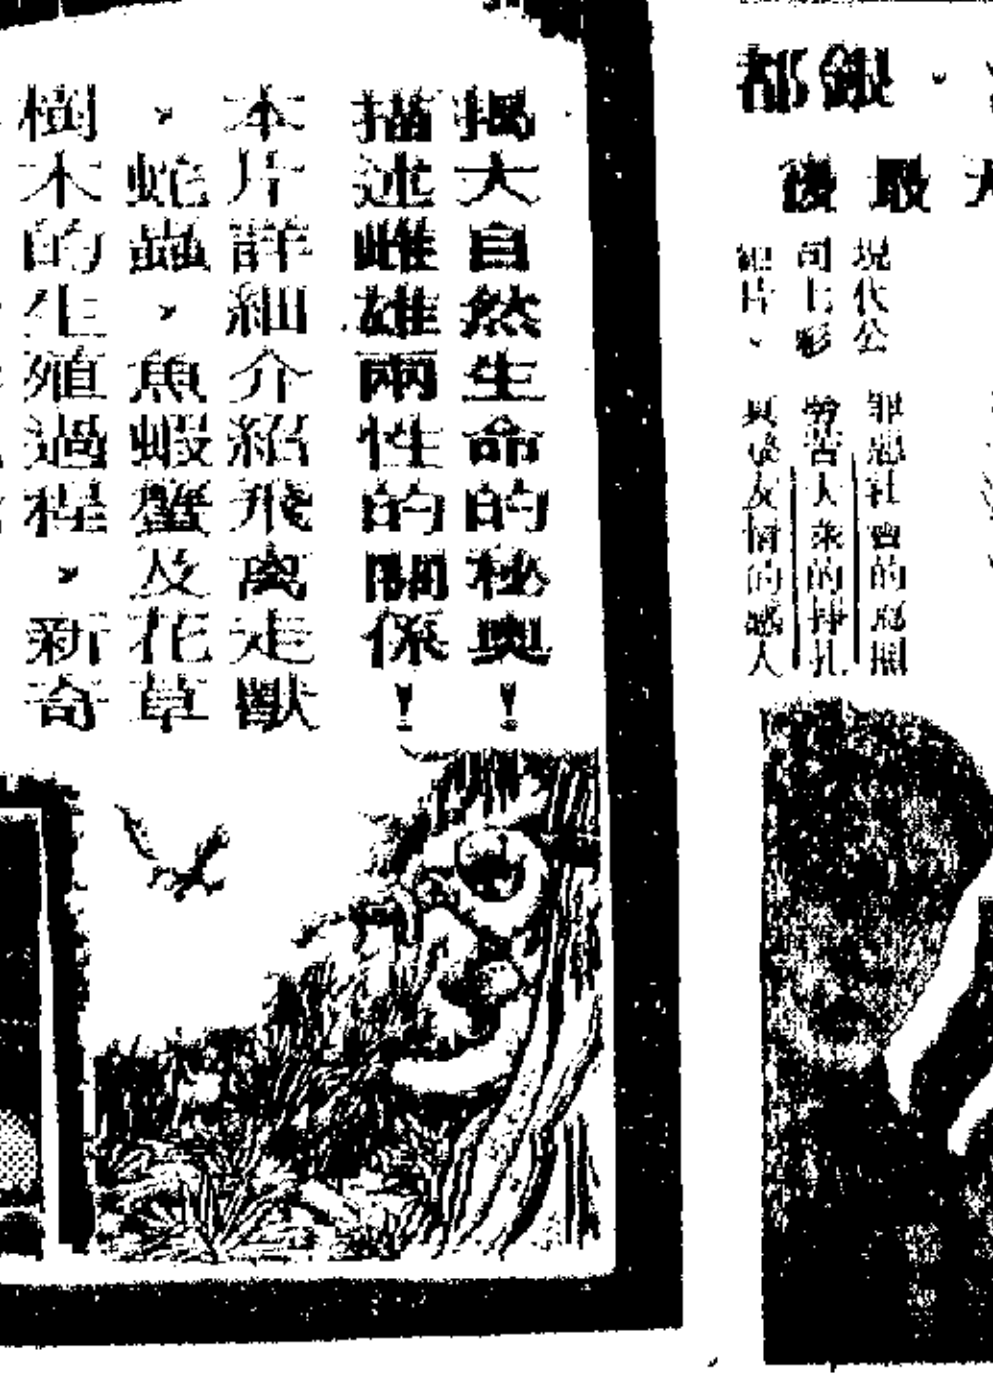 揭大自然生命的秘奧！
描述雌雄兩性的關係！
本片詳細介紹飛禽走獸
、蛇蟲、魚蝦蟹及花草
樹木的生殖過程、新奇
都銀・
後最大
現代公
司七彩
片、
罪惡社會的寫照
勞苦人羣的掙扎
真摯友情的感人